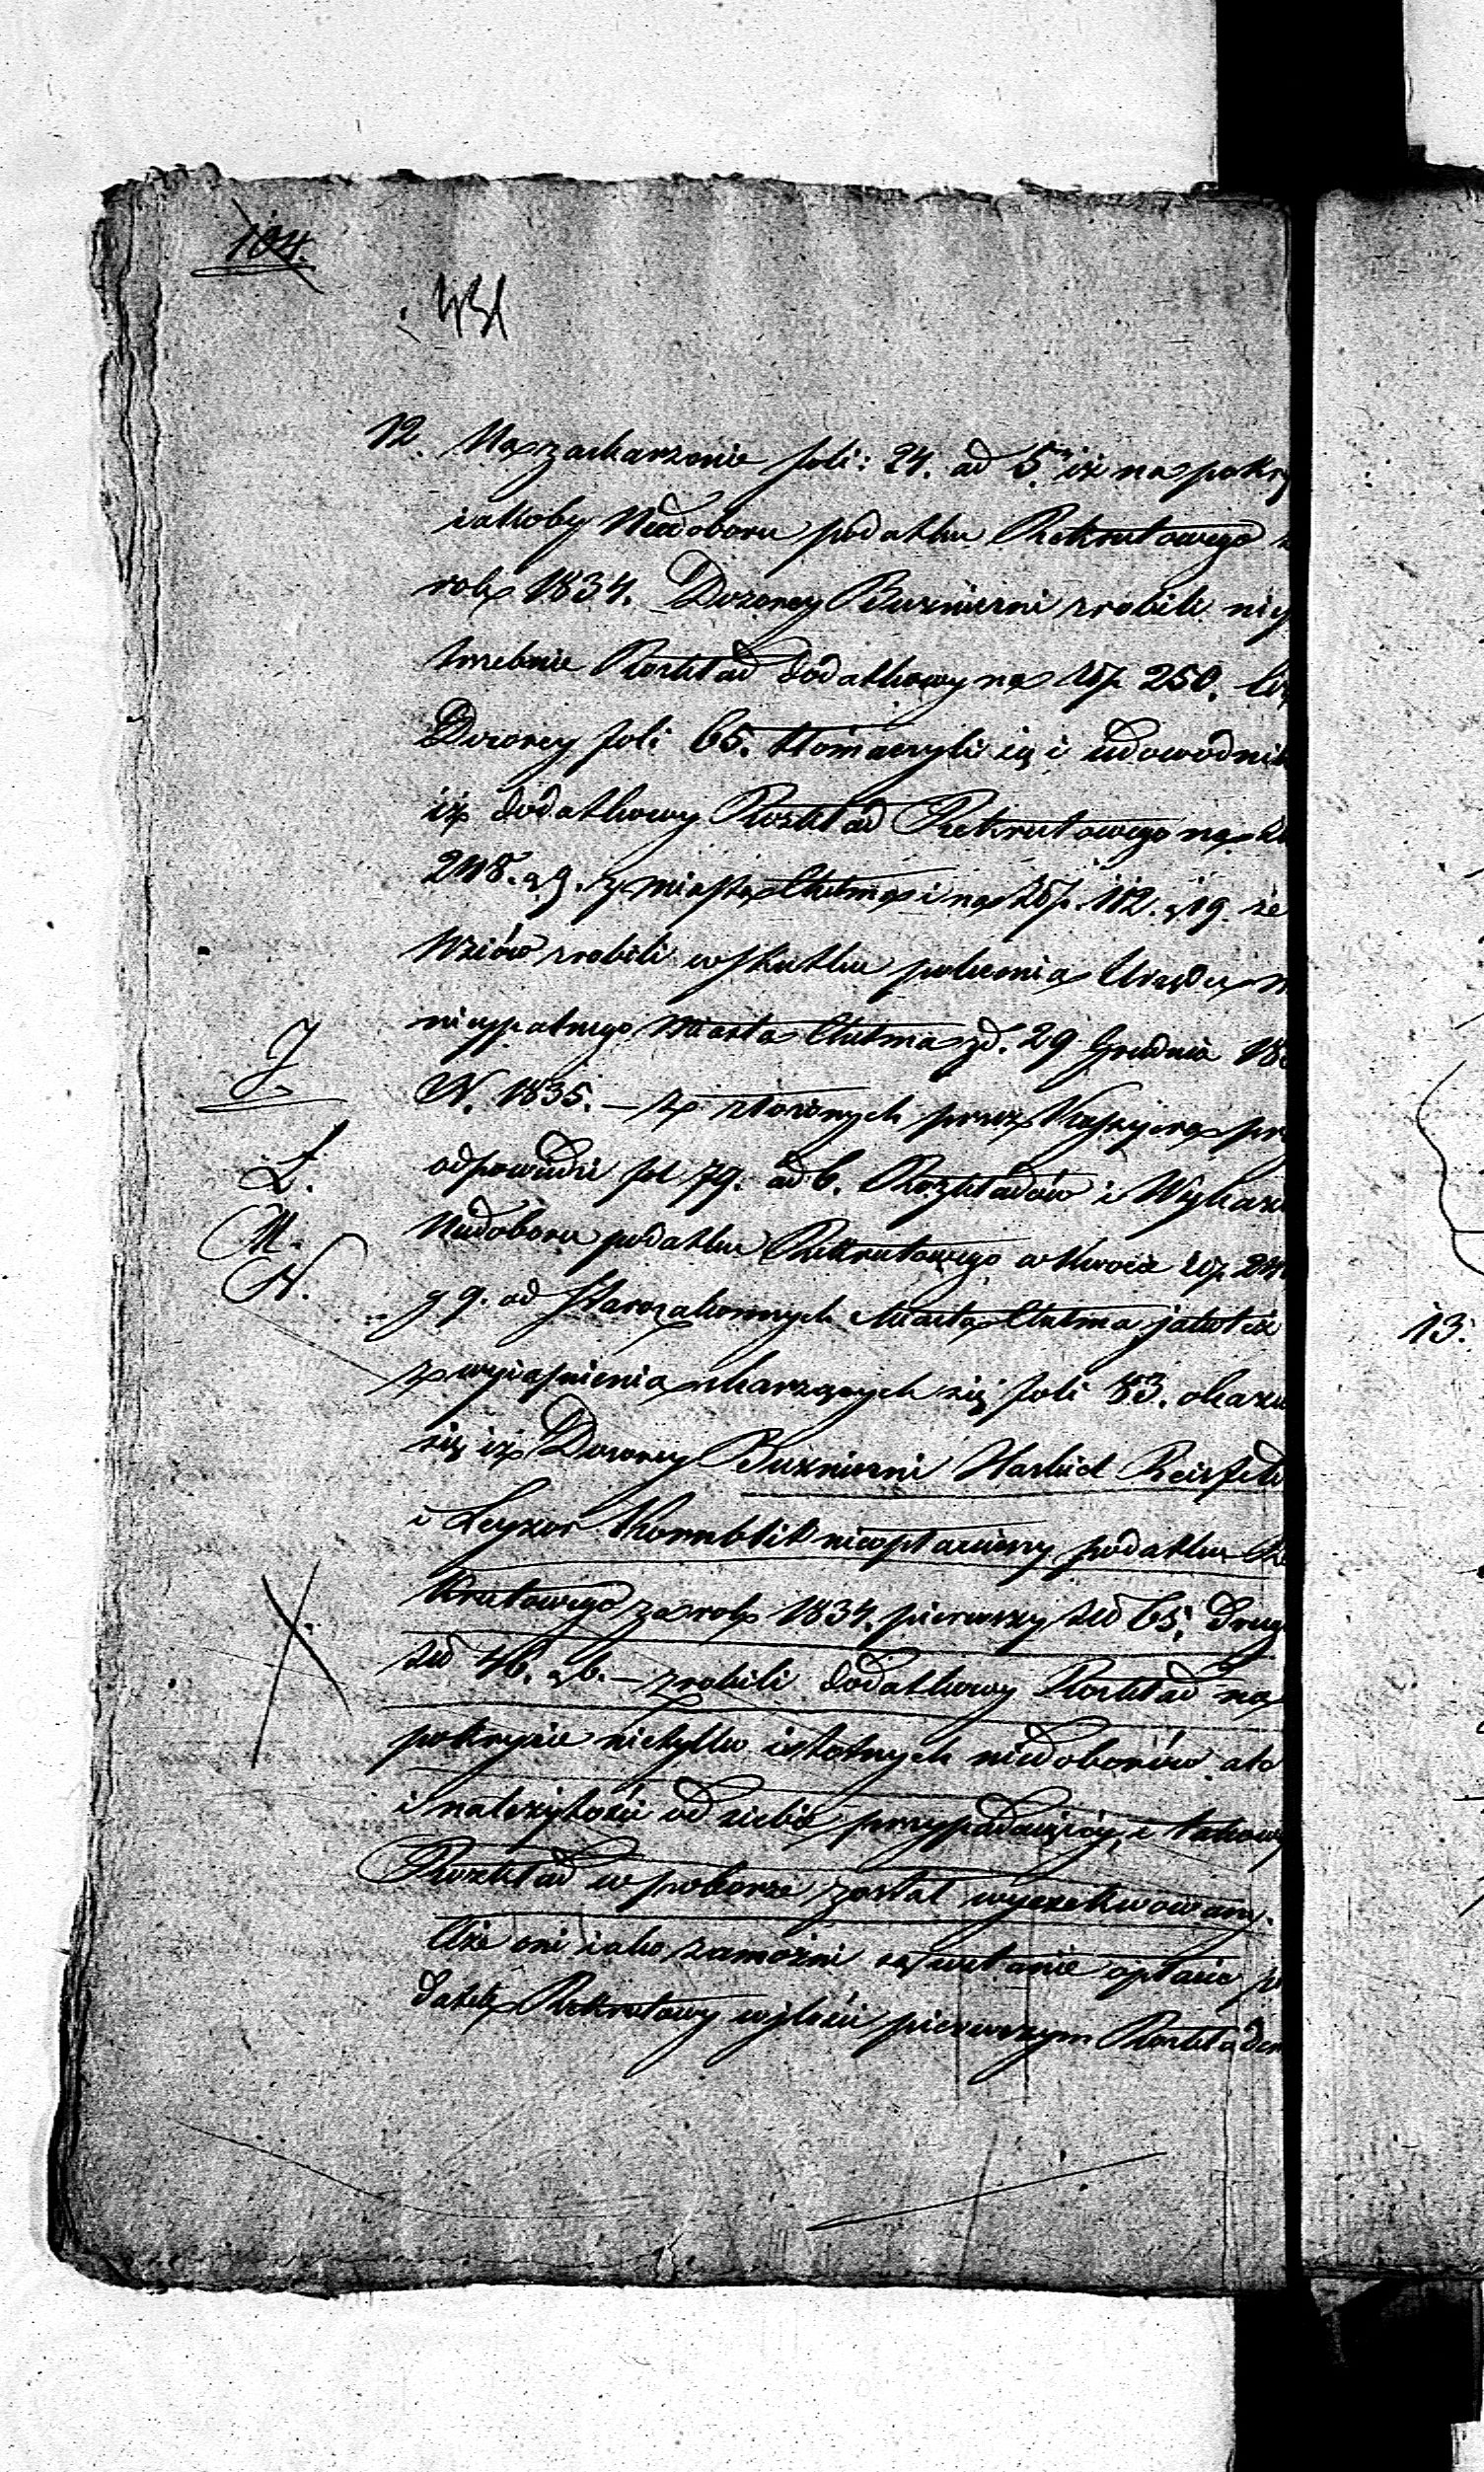 104.
431
12. Na zaskarzenie foli: 24. ad 5. iż na pokry
iakoby Niedoboru podatku Rekrutowego
rok 1834. Dozorcy Bużniczni zrobili nie
trzebnie Rozkład dodatkowy na złp 250.
Dozorcy foli 65. tłomaczyli się i udowodnili
iż dodatkowy Rozkład Rekrutowego na
248. g 9. z miasta Chełma i na złp. 112. g 19. ze
Wsiów zrobili w skutku polecenia Urzędu
nicypalnego Miasta Chełma z d. 29 Grudnia 18
N. 1835. – z złożonych przez Kassyera
J
odpowiedzi fol 79. ad 6. Rozkładów i Wykazu
Ł.
Niedoboru podatku Rekrutowego w kwocie złp 24
M.
N.
g 9. od Starozakonnych Miasta Chełma jakoteż
z wyiaśnienia skarzących się foli 83. okazu
się iż Dozorcy Bużniczni Haskiel
i Leyzor Kornblit nieopłaciwszy podatku Re
krutowego za rok 1834. pierwszy złp 65. drug
złp 46. g 6. – zrobili dodatkowy Rozkład na
pokrycie nietylko istotnych niedoborów ale
i należytości od siebie przypadaiącey i takowy
Rozkład w poborze został wyexekwowany.
Aże oni iako zamożni są w stanie opłacić po
datek Rekrutowy pierwszym Rozkładem
13.